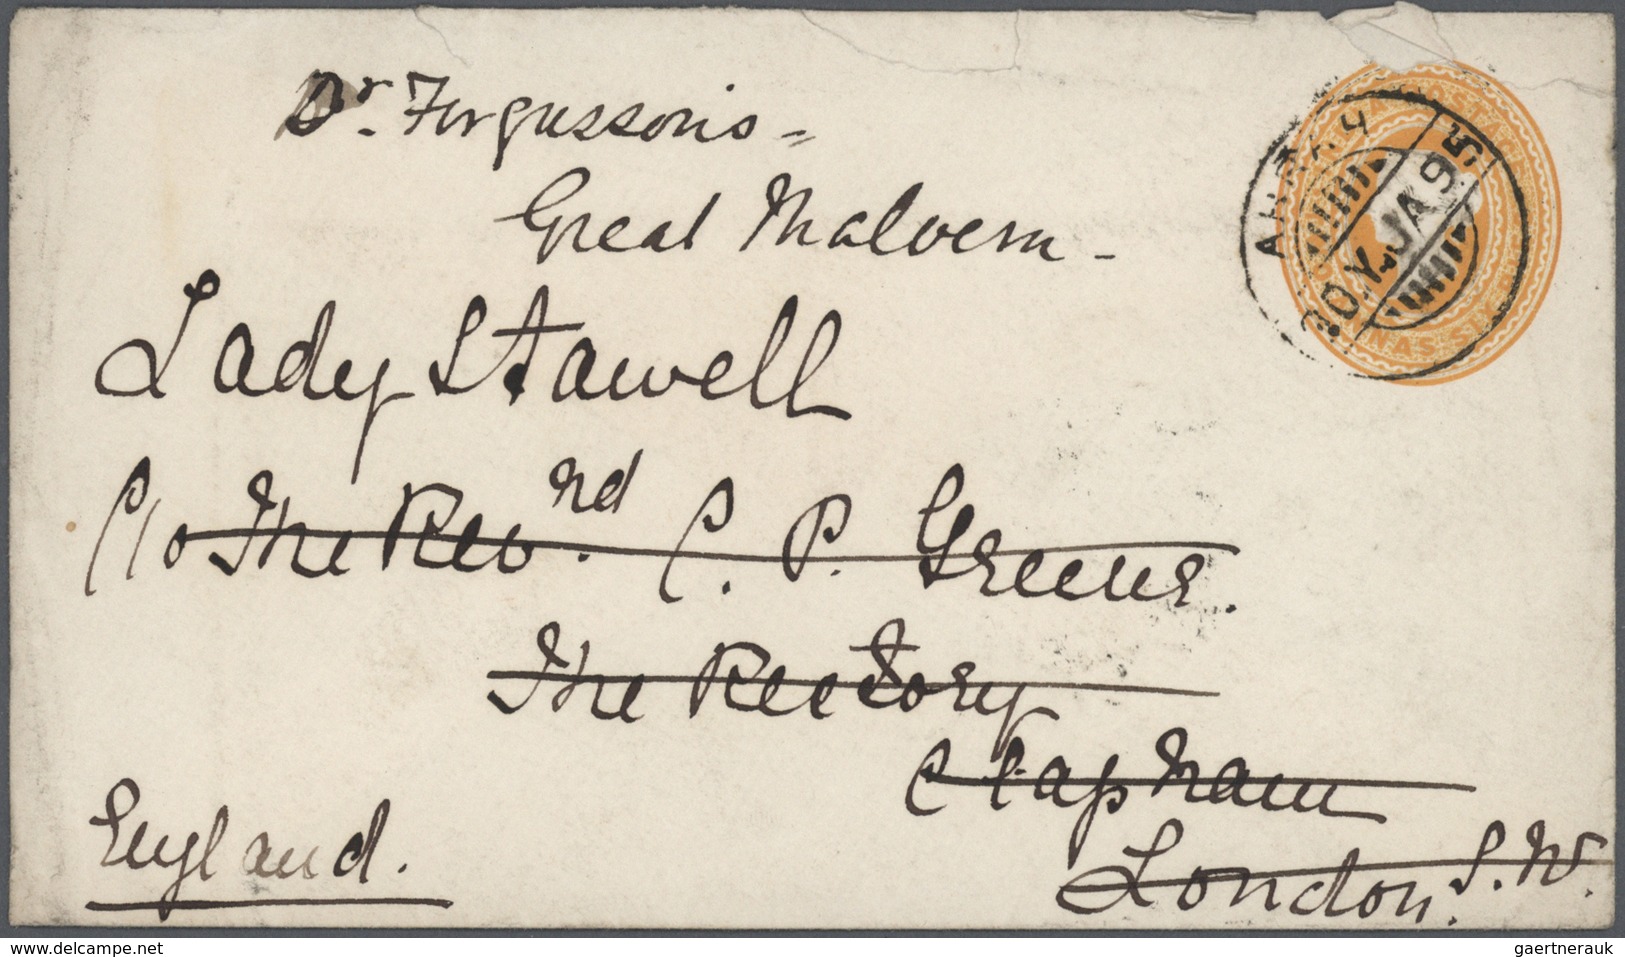 Dr. Fergusson's -
Great Malvern -
Lady Stawell
C/o The Revnd. C. P. Greene.
The Rectory
Clapham
London. S.W.
England.
JA 95
www.delcampe.net
gaertnerauk